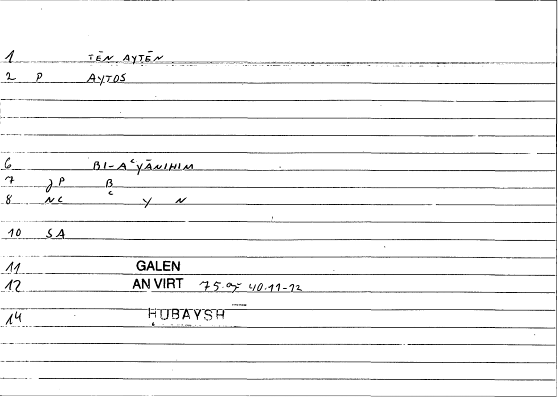 1 TĒN AYTĒN
2 P AYTOS
6 BI-AʿYĀNIHIM
7 JP B
8 NC ʿ Y N
10 SA
11 GALEN
12 AN VIRT 40.11-12
14 HUBAYSH